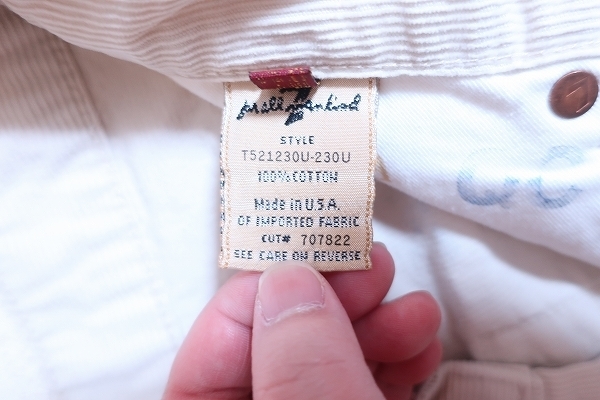 7
for all mankind
STYLE
T521230U-230U
100% COTTON
Made in U.S.A.
OF IMPORTED FABRIC
CUT# 707822
SEE CARE ON REVERSE